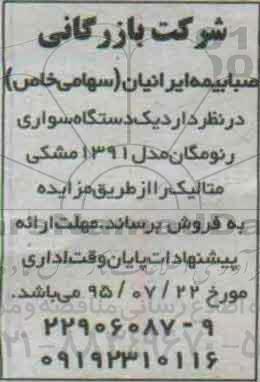 شرکت بازرگانی
صبابیمه ایرانیان (سهامی خاص)
در نظر دارد یک دستگاه سواری
رنو مگان مدل ۱۳۹۱ مشکی
متالیک را از طریق مزایده
به فروش برساند. مهلت ارائه
پیشنهادات پایان وقت اداری
مورخ ۲۲ / ۰۷ / ۹۵ می‌باشد.
۲۲۹۰۶۰۸۷ - ۹
۰۹۱۹۲۳۱۰۱۱۶